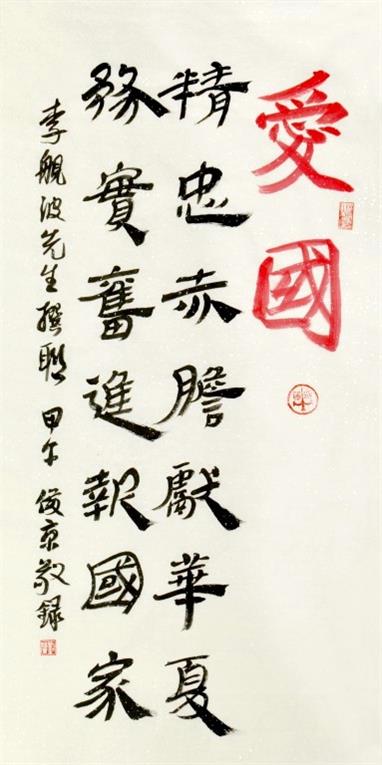 愛國
精忠赤膽獻華夏
務實奮進報國家
李舰波先生撰聯 甲午 俊京敬錄